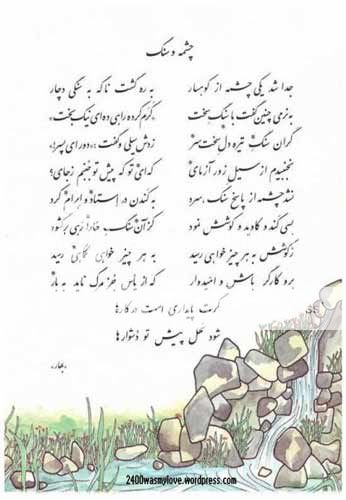 چشمه و سنگ
جدا شد یکی چشمه از کوهسار به ره گشت ناگه به سنگی دچار
به نرمی چنین گفت با سنگ سخت: «کرم کرده راهی ده ای نیک بخت»
گران سنگ تیره دل سخت سر زدش سیلی و گفت: «دور ای پسر!
نجنبیدم از سیل زور آزمای که ای تو که پیش تو جنبم ز جای؟»
نشد چشمه از پاسخ سنگ، سرد به کندن در استاد و ابرام کرد
بسی کند و کاوید و کوشش نمود کز آن سنگ خارا رهی برگشود
ز کوشش به هر چیز خواهی رسید به هر چیز خواهی کماهی رسید
برو کارگر باش و امیدوار که از یأس جز مرگ ناید به بار
گرت پایداری است در کارها
شود سهل پیش تو دشوارها
«بهار»
2400wasmylove.wordpress.com